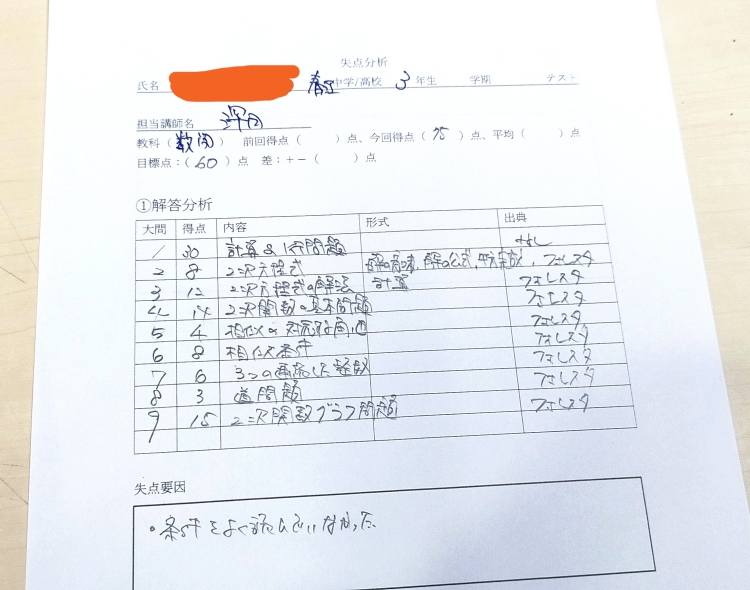 失点分析
氏名 中学/高校 3 年生 学期 テスト
担当講師名
教科( ) 前回得点( )点、今回得点( 75 )点、平均( )点
目標点:( 60 )点 差:+-( )点
①解答分析
大問 得点 内容 形式 出典
1 30 計算&1行問題 なし
2 8 2次方程式 解の意味、解の公式、フォレスタ
3 12 2次方程式の解法 計算 フォレスタ
4 14 2次関数の基本問題 フォレスタ
5 4 相似の対応する角, 辺 フォレスタ
6 8 相似条件 フォレスタ
7 6 3つの連続した整数 フォレスタ
8 3 道問題 フォレスタ
9 15 2次関数グラフ問題 フォレスタ
失点要因
・条件をよく読んでいなかった